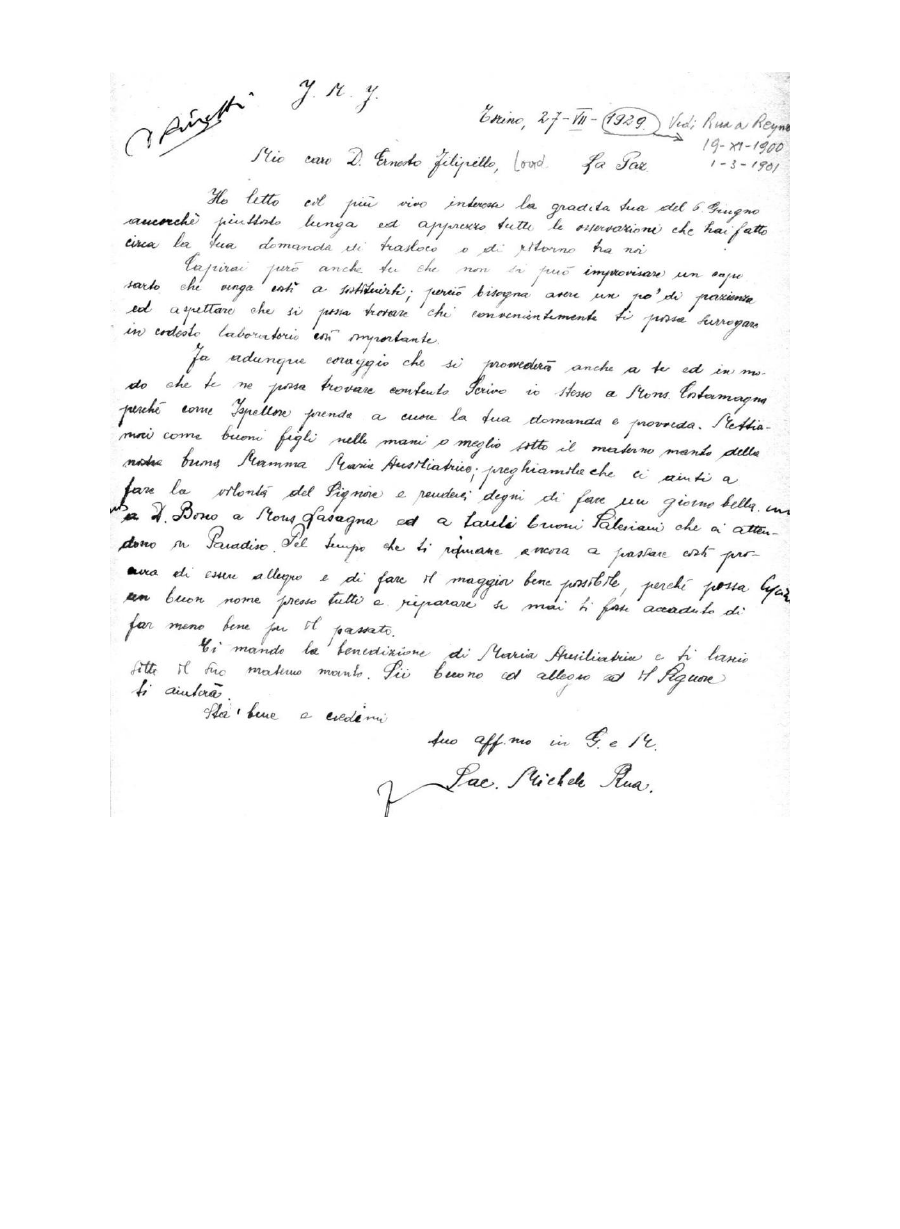 J. M. J.
Torino, 27-VII-1929. Vedi Rua a Reyno
19-XI-1900
1-3-1901
Mio caro D. Ernesto Filipello, La Paz
Ho letto col più vivo interesse la gradita tua del 6 Giugno
ancorchè piuttosto lunga ed apprezzo tutte le osservazione che hai fatto
circa la tua domanda di trasloco o di ritorno tra noi
Capirai però anche tu che non si può improvisare un capo
sarto che venga costì a sostituirti; perciò bisogna avere un po' di pazienza
ed aspettare che si possa trovare chi convenientemente ti possa surrogare
in codesto laboratorio così importante.
Fa adunque coraggio che si provvederà anche a te ed in mo-
do che te ne possa trovare contento Scrivo io stesso a Mons. Costamagna
perchè come Ispettore prenda a cuore la tua domanda e provveda. Mettia-
moci come buoni figli nelle mani o meglio sotto il materno manto della
nostra buona Mamma Maria Ausiliatrice; preghiamola che ci aiuti a
fare la volontà del Signore e renderci degni di fare un giorno bella
a D. Bosco a Mons Lasagna ed a tanti buoni Salesiani che ci atten-
dono in Paradiso. Pel tempo che ti rimane ancora a passare costì pro-
cura di essere allegro e di fare il maggior bene possibile, perchè possa
un buon nome presso tutti e riparare se mai ti fosse accaduto di
far meno bene per il passato.
Ti mando la benedizione di Maria Ausiliatrice e ti lascio
sotto il suo materno manto. Sii buono ed allegro ed il Signore
ti aiuterà.
Sta' bene e credimi
tuo aff.mo in G. e M.
Sac. Michele Rua.